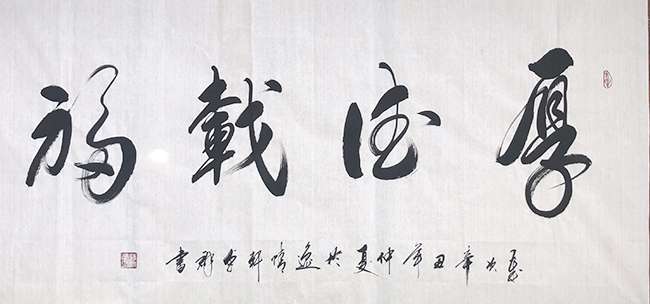 厚德載福
歲次辛丑年仲夏於逸情軒
書